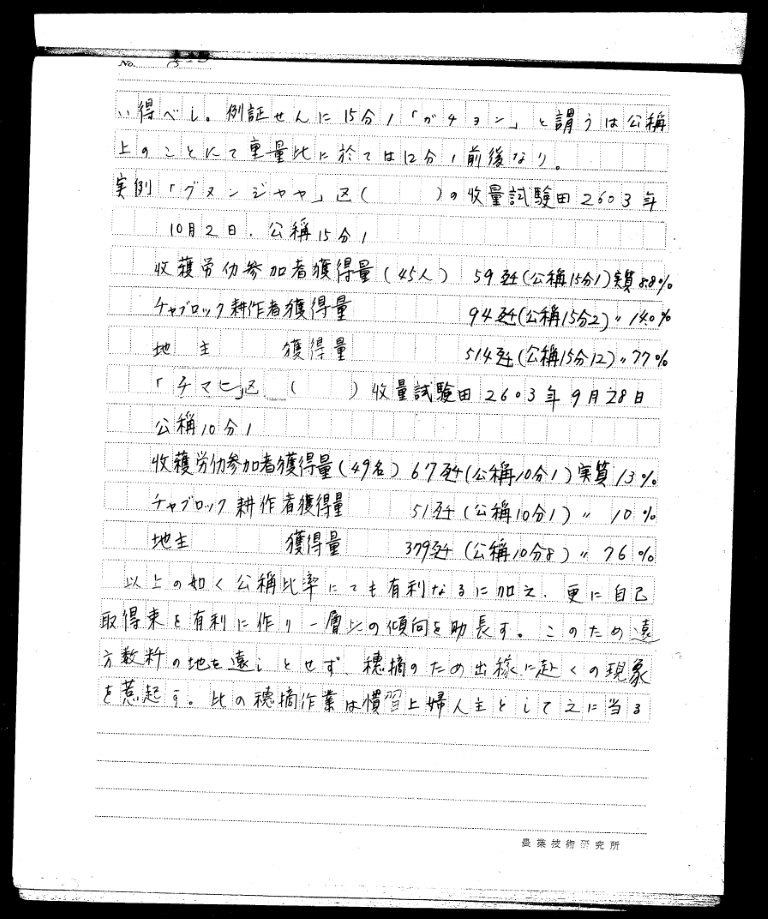 No.
い得べし。例証せんに15分1「ガチョン」と謂うは公稱
上のことにて重量比に於ては12分1前後なり。
実例「グヌンジャヤ」区(　　)の收量試験田2603年
10月2日、公稱15分1
收穫労仂参加者獲得量(45人) 59瓩(公稱15分1)実質8.8%
チャブロック耕作者獲得量 94瓩(公稱15分2)〃14.0%
地主 獲得量 514瓩(公稱15分12)〃77%
「チマヒ」区(　　)收量試験田2603年9月28日
公稱10分1
收穫労仂参加者獲得量(49名) 67瓩(公稱10分1)実質13%
チャブロック耕作者獲得量 51瓩(公稱10分1)〃10%
地主 獲得量 379瓩(公稱10分8)〃76%
以上の如く公稱比率にても有利なるに加え、更に自己
取得束を有利に作り一層此の傾向を助長す。このため遠
方数粁の地を遠しとせず、穂摘のため出稼に赴くの現象
を惹起す。此の穂摘作業は慣習上婦人主として之に当る
農業技術研究所